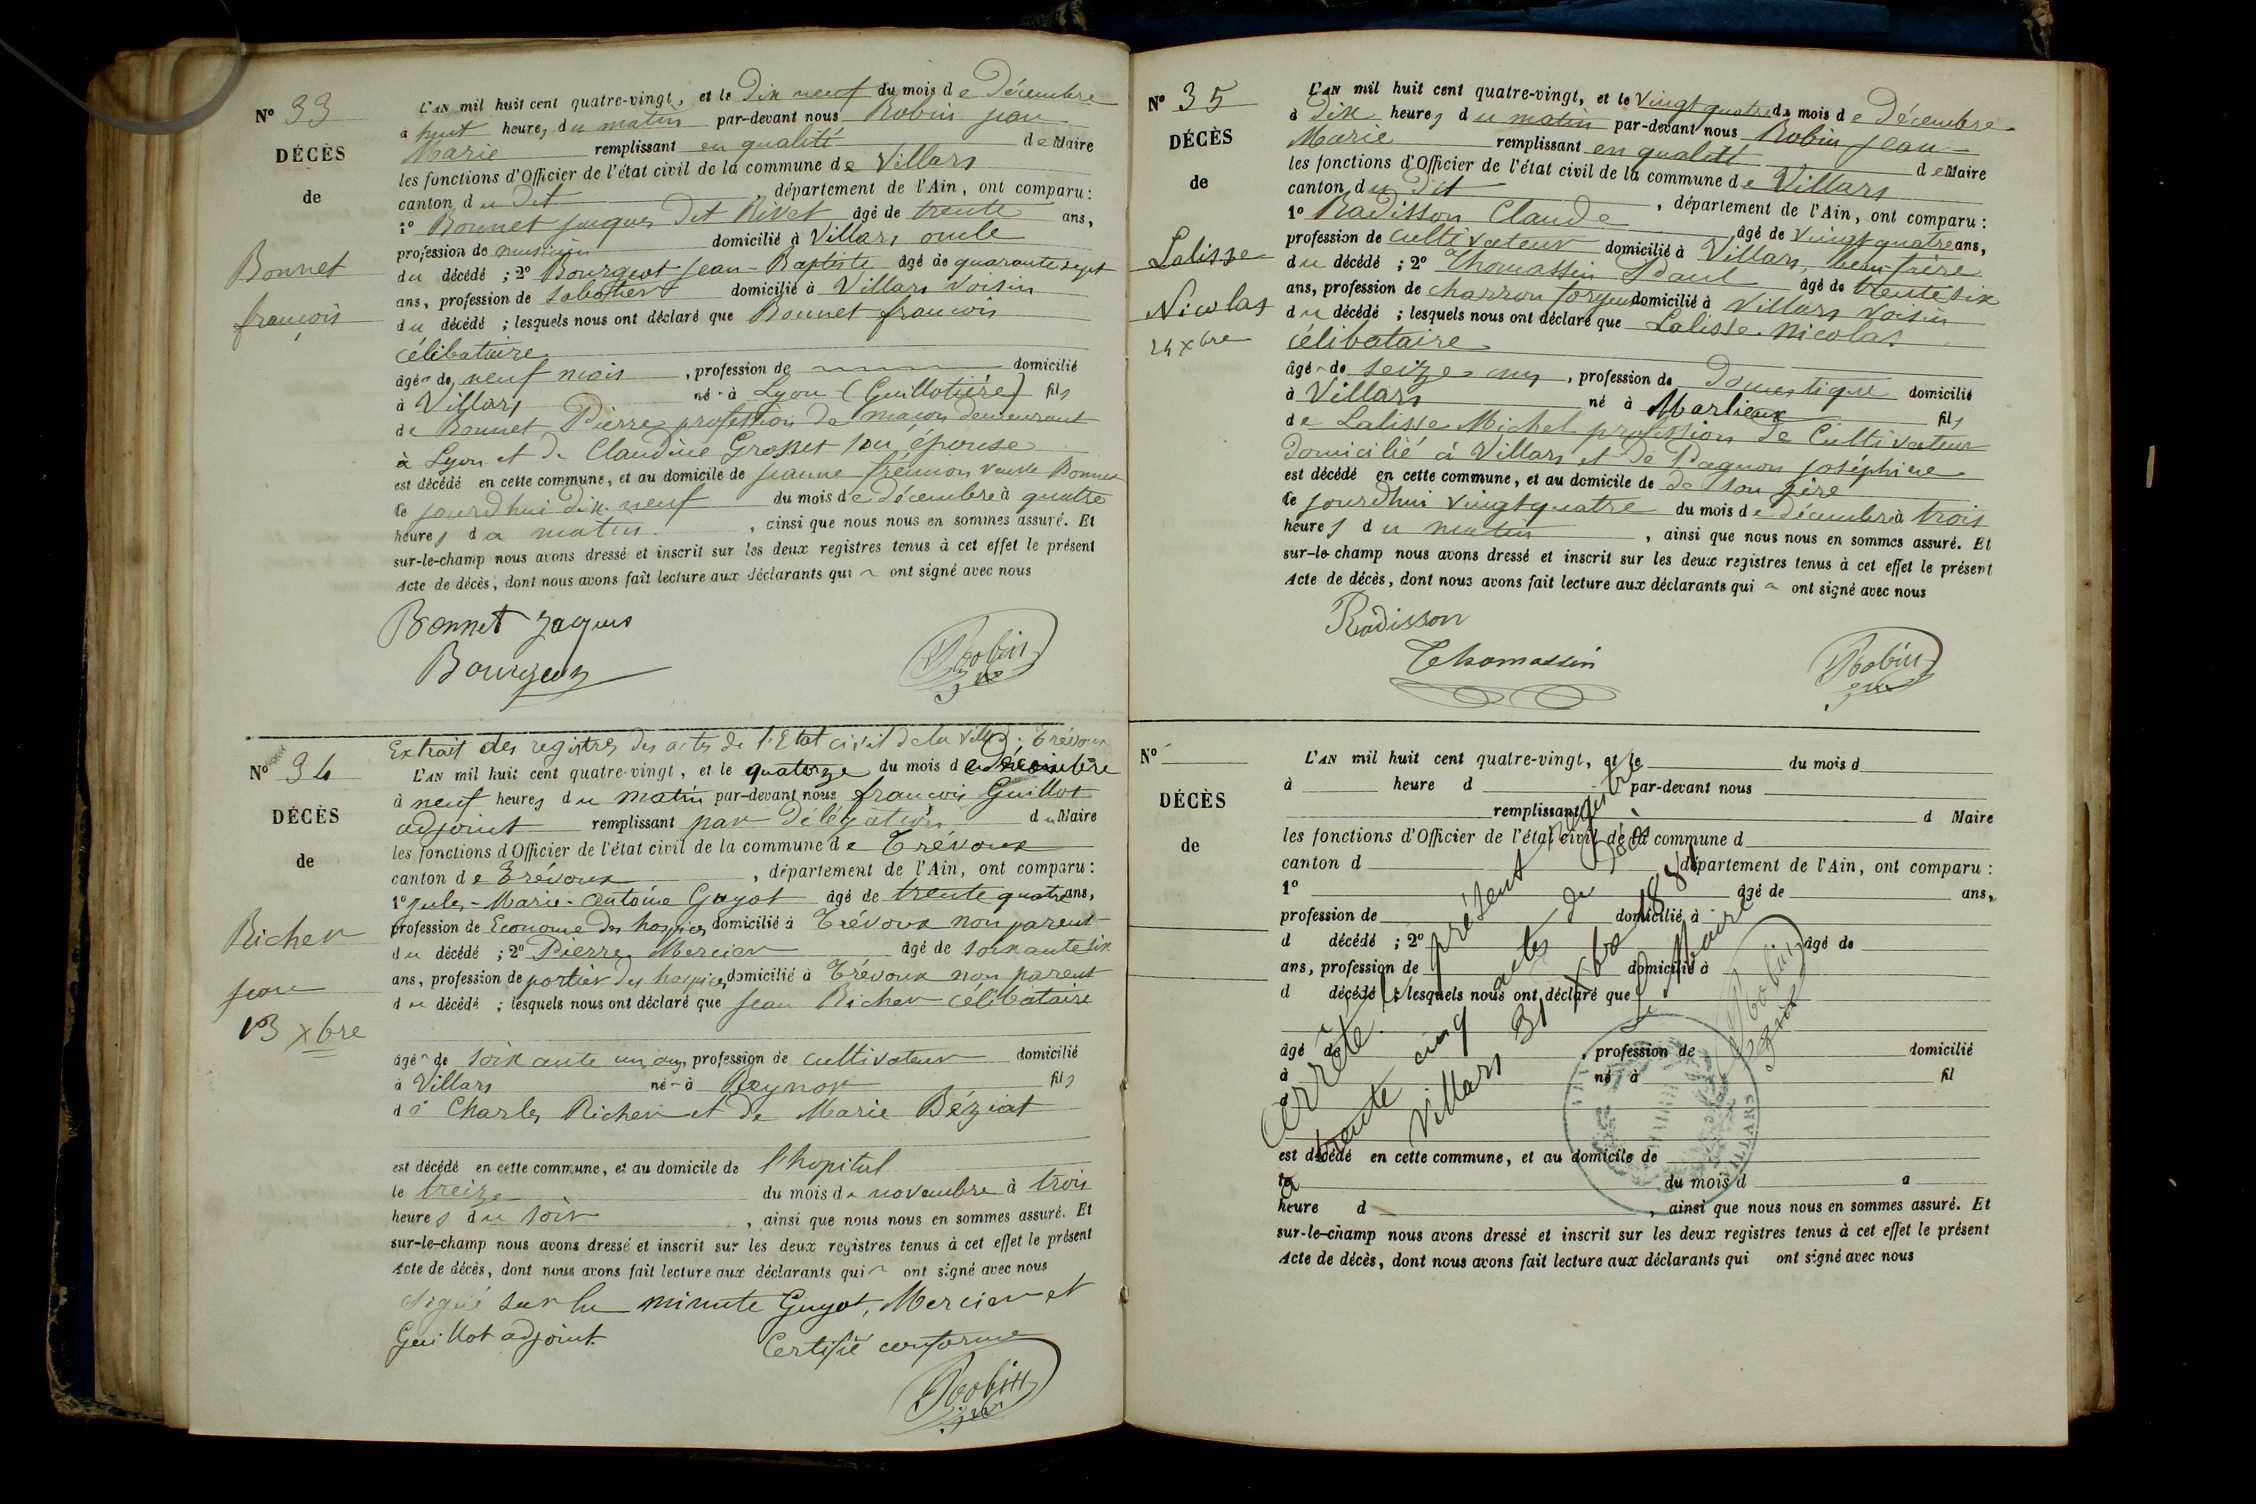 N° 33
DÉCÈS
de
Bonnet
françois
L'AN mil huit cent quatre-vingt, et le Dix neuf du mois de Décembre
à huit heures du matin par-devant nous Robin jean
Marie remplissant en qualité de Maire
les fonctions d'Officier de l'état civil de la commune de Villars
canton du dit, département de l'Ain, ont comparu :
1° Bonnet jaques Dit Rivet âgé de trente ans,
profession de musicien domicilié à Villars oncle
du décédé ; 2° Bourgeot Jean-Baptiste âgé de quarante sept
ans, profession de sabottier domicilié à Villars voisin
du décédé ; lesquels nous ont déclaré que Bonnet françois
célibataire
âgé de neuf mois, profession de domicilié
à Villars né à Lyon (Guillotière) fils
de Bonnet Pierre profession de maçon demeurant
à Lyon et de Claudine Grosset son épouse
est décédé en cette commune, et au domicile de jeanne veuve Bonnet
le jourdhui dix neuf du mois de décembre à quatre
heures du matin, ainsi que nous nous en sommes assuré. Et
sur-le-champ nous avons dressé et inscrit sur les deux registres tenus à cet effet le présent
Acte de décès, dont nous avons fait lecture aux déclarants qui ont signé avec nous
Bonnet Jaques
Bourgeot
Robin
N° 34
DÉCÈS
de
Richer
jean
13 xbre
Extrait des registres des actes de l'Etat civil de la ville de Trévoux
L'AN mil huit cent quatre-vingt, et le quatorze du mois de Décembre
à neuf heures du matin par-devant nous françois Guillot
adjoint remplissant par délégation du Maire
les fonctions d'Officier de l'état civil de la commune de Trévoux
canton de Trévoux, département de l'Ain, ont comparu :
1° jules-Marie-Antoine Guyot âgé de trente quatre ans,
profession de Econome des hospices domicilié à Trévoux non parent
du décédé ; 2° Pierre Mercier âgé de soixante six
ans, profession de portier des hospices domicilié à Trévoux non parent
du décédé ; lesquels nous ont déclaré que Jean Richer célibataire
âgé de soixante un ans, profession de cultivateur domicilié
à Villars né à fils
de Charles Richer et de Marie Béziat
est décédé en cette commune, et au domicile de l'hopital
le treize du mois de novembre à trois
heures du soir, ainsi que nous nous en sommes assuré. Et
sur-le-champ nous avons dressé et inscrit sur les deux registres tenus à cet effet le présent
Acte de décès, dont nous avons fait lecture aux déclarants qui ont signé avec nous
Signé sur la minute Guyot, Mercier et
Guillot adjoint. Certifié conforme
Robin
N° 35
DÉCÈS
de
Lalisse
Nicolas
24 xbre
L'AN mil huit cent quatre-vingt, et le vingt quatre du mois de Décembre
à Dix heures du matin par-devant nous Robin Jean
Marie remplissant en qualité de Maire
les fonctions d'Officier de l'état civil de la commune de Villars
canton du dit, département de l'Ain, ont comparu :
1° Radisson Claude âgé de vingt quatre ans,
profession de cultivateur domicilié à Villars, beau-frère
du décédé ; 2° Thomassin âgé de trente six
ans, profession de charron forgeur domicilié à Villars voisin
du décédé ; lesquels nous ont déclaré que Lalisse Nicolas
célibataire
âgé de seize ans, profession de Domestique domicilié
à Villars né à Marlieux fils
de Lalisse Michel profession de Cultivateur
domicilié à Villars et de Pagnon joséphine
est décédé en cette commune, et au domicile de de son père
le jourdhui vingt quatre du mois de décembre à trois
heures du matin, ainsi que nous nous en sommes assuré. Et
sur-le-champ nous avons dressé et inscrit sur les deux registres tenus à cet effet le présent
Acte de décès, dont nous avons fait lecture aux déclarants qui ont signé avec nous
Radisson
Thomassin
Robin
N°
DÉCÈS
de
L'AN mil huit cent quatre-vingt, et le du mois d
à heure d par-devant nous
remplissant d Maire
les fonctions d'Officier de l'état civil de la commune d
canton d département de l'Ain, ont comparu :
1° âgé de ans,
profession de domicilié à
d décédé ; 2° âgé de
ans, profession de domicilié à
d décédé ; lesquels nous ont déclaré que
âgé de, profession de domicilié
à né à fil
d
est décédé en cette commune, et au domicile de
le du mois d à
heure d, ainsi que nous nous en sommes assuré. Et
sur-le-champ nous avons dressé et inscrit sur les deux registres tenus à cet effet le présent
Acte de décès, dont nous avons fait lecture aux déclarants qui ont signé avec nous
Arrêté le présent registre
à trente cinq actes de Décès
Villars 31 Xbre 188
Le Maire
Robin
VILLARS